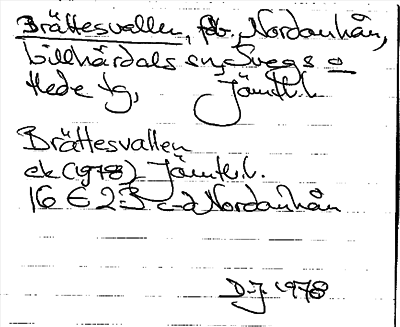 Brättesvallen, fb. Nordanhån,
Lillhärdals sn, Svegs o
Hede tg, Jämtl.l.
Brättesvallen
ek (1978) Jämtl.l.
16 E 2-3 c-d Nordanhån
D.J. 1978